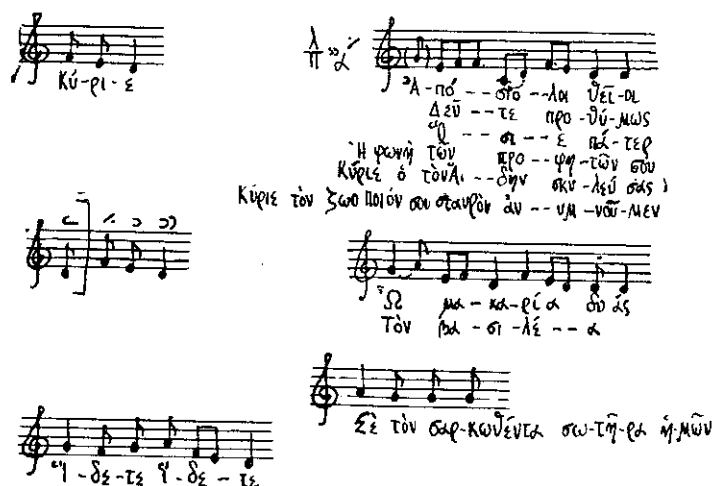 Κύ-ρι-ε
λ/π "ά
Ἀ-πό---στο--λοι θεῖ-οι
Δεῦ--τε προ-θύ-μως
Ὅ--σι--ε πά-τερ
Ἡ φωνὴ τῶν προ-φη-τῶν σου
Κύριε ὁ τὸν Ἅι--δην σκυ-λεύ σας
Κύριε τὸν ζωοποιόν σου σταυρὸν ἀν--υμ-νοῦ-μεν
Ὦ μα-κα-ρί α δυ άς
Τὸν βα-σι-λέ--α
Ἴ-δε-τε ἴ-δε--τε
Σὲ τὸν σαρ-κωθέντα σω-τῆ-ρα ἡ-μῶν